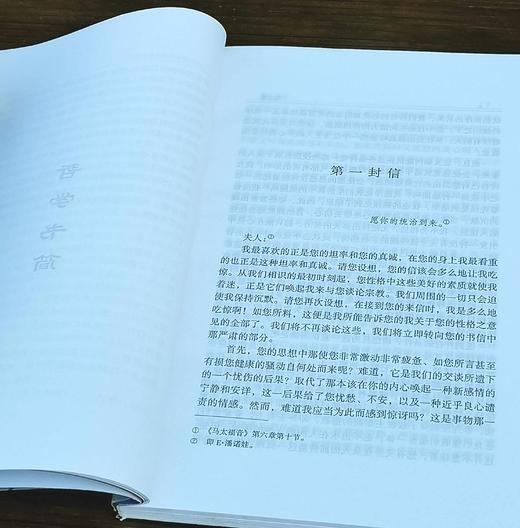 第一封信
愿你的统治到来。①
夫人：②
我最喜欢的正是您的坦率和您的真诚，在您的身上我最看重
的也正是这种坦率和真诚。请您设想，您的信该会多么地让我吃
惊。从我们相识的最初时刻起，您性格中这些美好的素质就使我
着迷，正是它们唤起我来与您谈论宗教。我们周围的一切只会迫
使我保持沉默。请您再次设想，在接到您的来信时，我是多么地
吃惊啊！如您所料，这便是我所能告诉您的我关于您的性格之意
见的全部了。我们将不再谈论这些，我们将立即转向您的书信中
那严肃的部分。
首先，您的思想中那使您非常激动非常疲惫、如您所言甚至
有损您健康的骚动自何处而来呢？难道，它是我们的交谈所遗下
的一个忧伤的后果？取代了那本该在你的内心唤起一种新感情的
宁静和安详，这一后果给了您忧愁、不安，以及一种近乎良心谴
责的情感。然而，难道我应当为此而感到惊讶吗？这是事物那一
① 《马太福音》第六章第十节。
② 即E·潘诺娃。
哲学书简